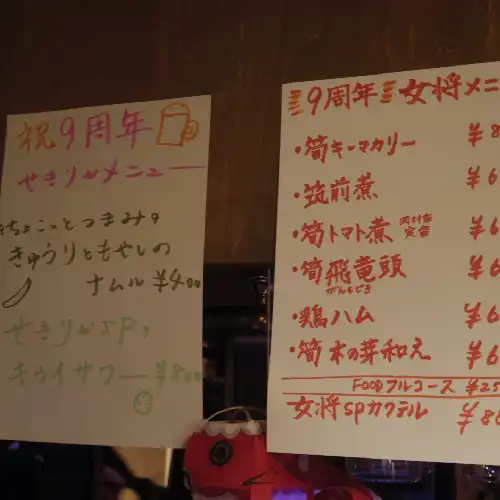 祝9周年
せきりかメニュー
ちょこっとつまみ。
きゅうりともやしの
ナムル ¥400
せきりかSP。
キウイサワー ¥800
9周年 女将メニ
・筍キーマカリー ¥8
・筑前煮 ¥6
・筍トマト煮 定番 ¥6
・筍飛竜頭 ¥6
がんもどき
・鶏ハム ¥6
・筍木の芽和え ¥6
FOODフルコース ¥25
女将SPカクテル ¥80